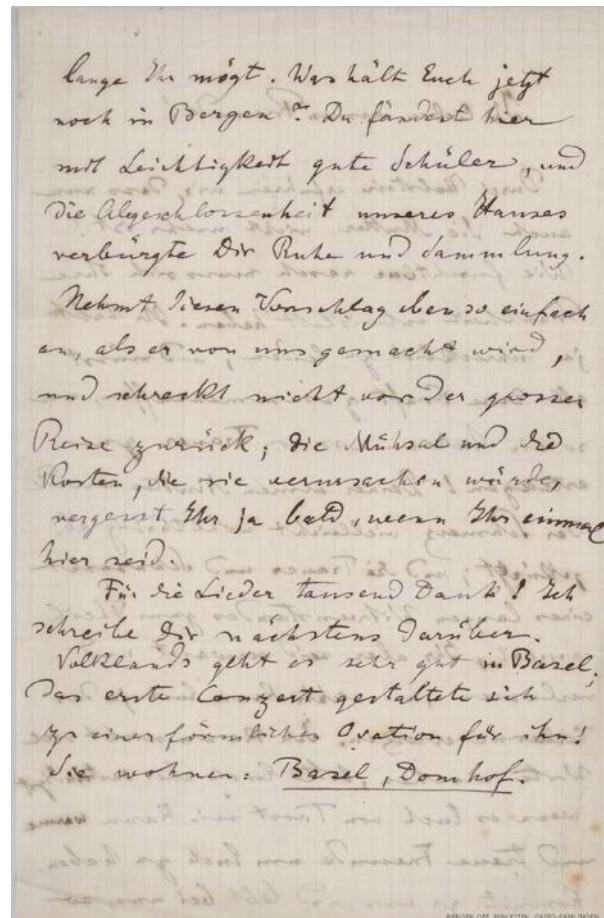 lange Ihr mögt. Was hält Euch jetzt
noch in Bergen? Du fändest hier
mit Leichtigkeit gute Schüler, und
die Abgeschlossenheit unseres Hauses
verbürgte Dir Ruhe und Sammlung.
Nehmt diesen Vorschlag eben so einfach
an, als er von uns gemacht wird,
und schreckt nicht vor der grossen
Reise zurück; die Mühsal und die
Kosten, die sie verursachen würde,
vergesst Ihr ja bald, wenn Ihr einmal
hier seid.
Für die Lieder tausend Dank! Ich
schreibe Dir nächstens darüber.
Volklands geht es sehr gut in Basel;
das erste Conzert gestaltete sich
zu einer förmlichen Ovation für ihn!
Sie wohnen: Basel, Domhof.